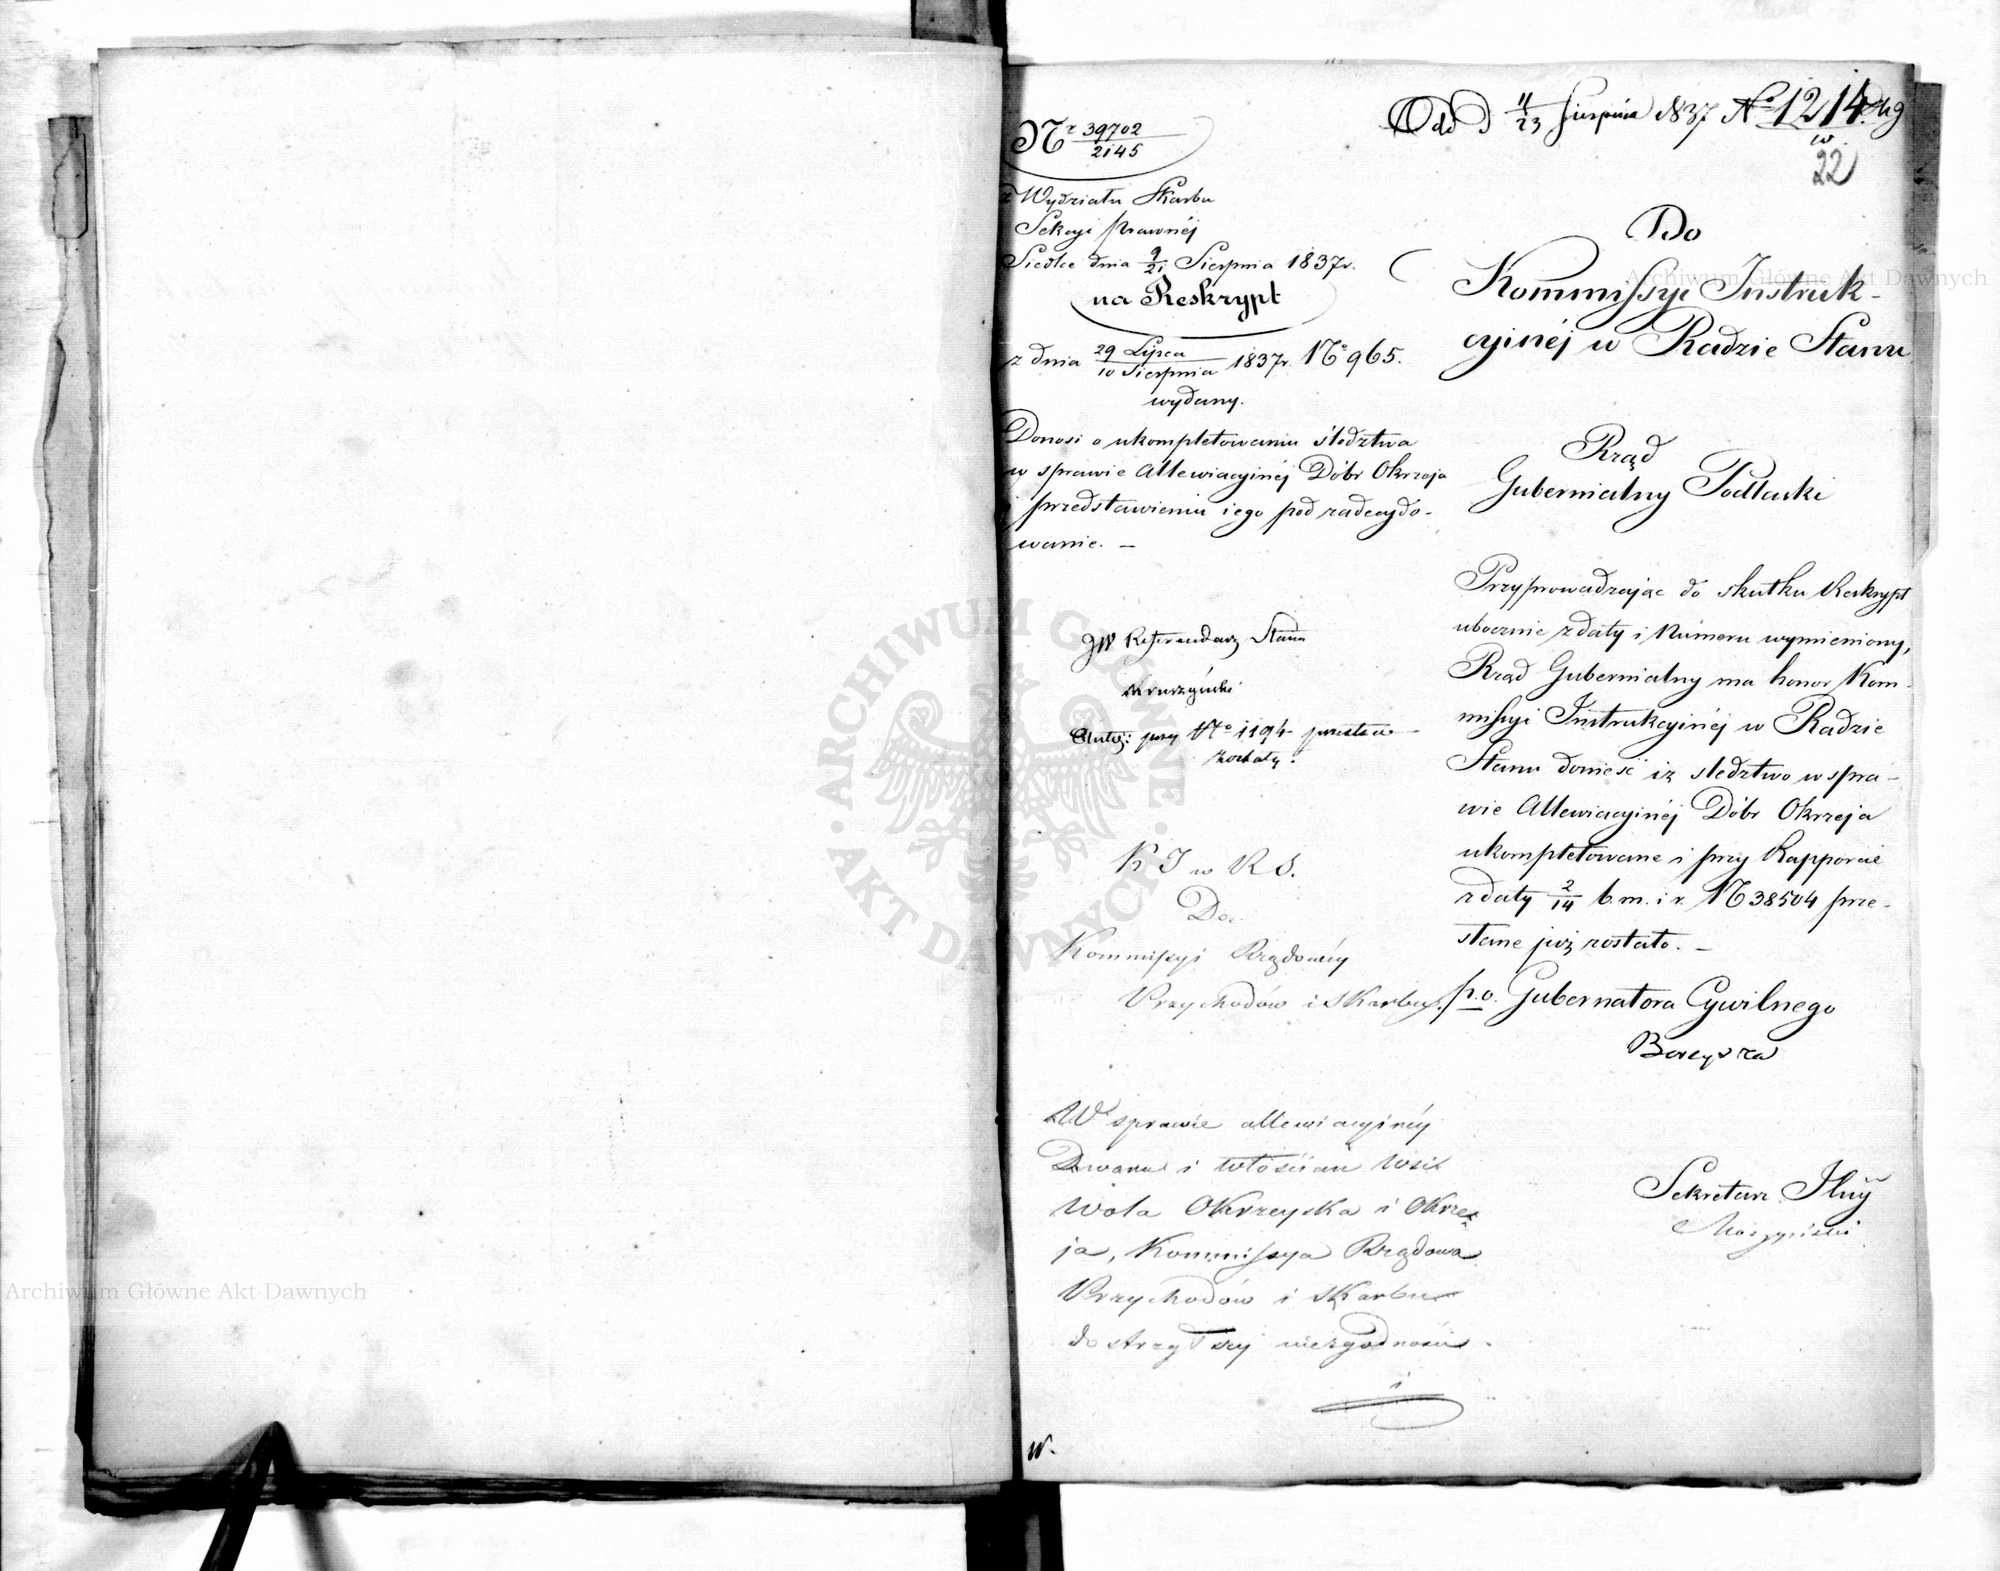 Odd d 11/23 Sierpnia 1837 No 1214
22
Nr 39702/2145
z Wydziału Skarbu
Sekcyi Prawnéj
Siedlce dnia 9/21 Sierpnia 1837r.
na Reskrypt
z dnia 29 Lipca/10 Sierpnia 1837r. No 965.
wydany.
Donosi o ukompletowaniu śledztwa
w sprawie Allewiacyjnéj Dóbr Okrzeja
i przedstawieniu iego pod zadecydo-
wanie. —
JW Referendarz Stanu
przy No 1194
zostały.
K J w R S.
Do
Kommissyi Rządowéy
Przychodów i Skarbu.
W sprawie allewiacyjnéy
Dworu i włościan wsi
Wola Okrzeyska i Okrze
ja, Kommissya Rządowa
Przychodów i Skarbu
dostrzegłszy niezgodności
i
W.
Do
Kommissyi Instruk-
cyjnéj w Radzie Stanu
Rząd
Gubernialny Podlaski
Przyprowadzając do skutku Reskrypt
ubocznie z daty i Numeru wymieniony,
Rząd Gubernialny ma honor Kom-
missyi Instrukcyjnéj w Radzie
Stanu donieść iż śledztwo w spra-
wie Allewiacyjnéj Dóbr Okrzeja
ukompletowane i przy Rapporcie
z daty 2/14 b.m. i r. N 38504 prze-
słane już zostało. —
p.o. Gubernatora Cywilnego
Sekretarz Jlny
Archiwum Główne Akt Dawnych
Archiwum Główne Akt Dawnych
ARCHIWUM GŁÓWNE
AKT DAWNYCH